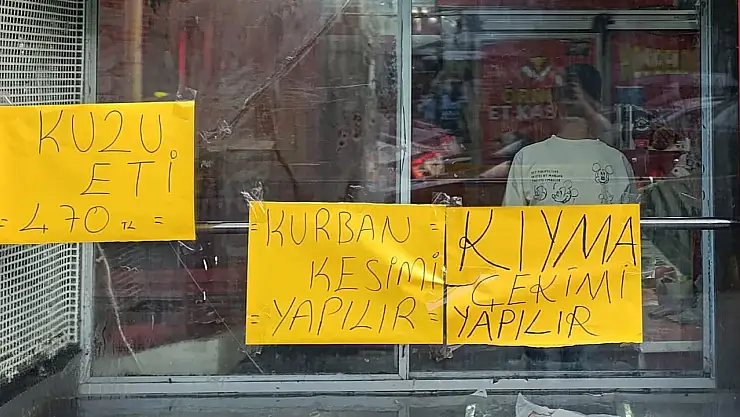 KUZU
ETİ
= 470 TL =
= KURBAN =
KESİMİ
= YAPILIR =
KIYMA
ÇEKİMİ
YAPILIR
ET KA